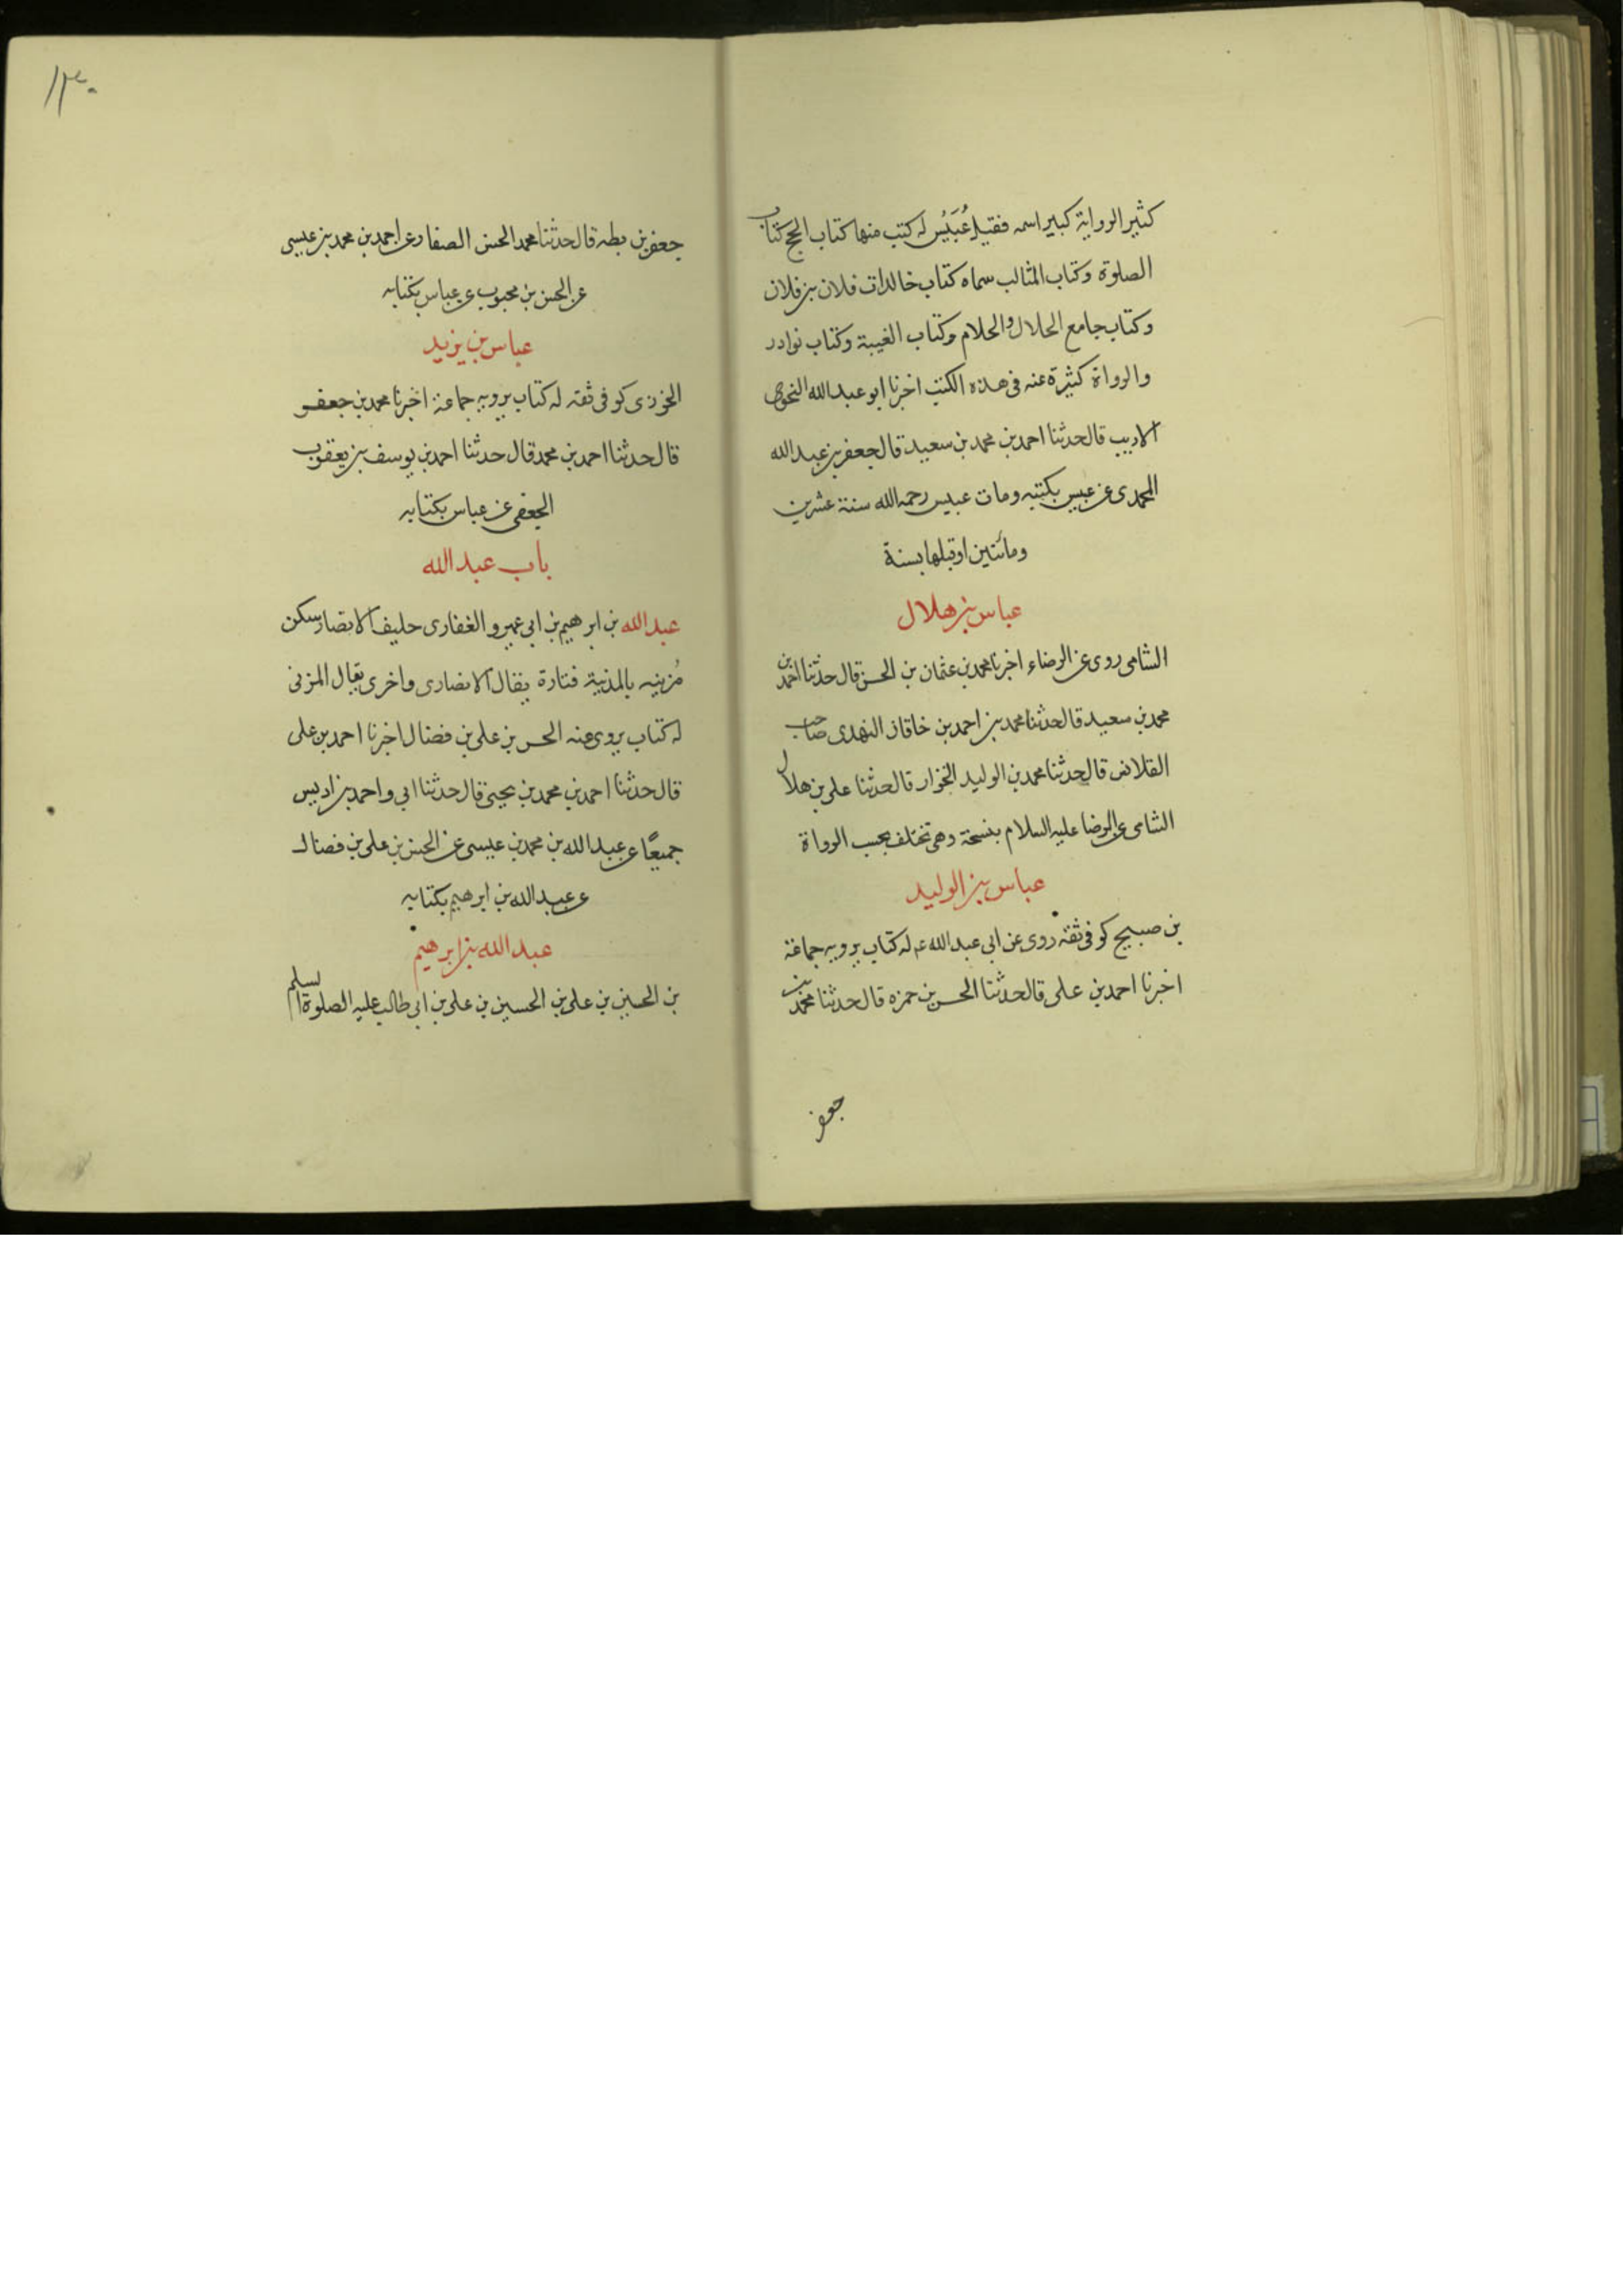 كثير الرواية كبير اسمه فقيل عُبَيْس له كتب منها كتاب الحج كتاب
الصلوة وكتاب المثالب سماه كتاب خالدات فلان بن فلان
وكتاب جامع الحلال والحلام وكتاب الغيبة وكتاب نوادر
والرواة كثيرة عنه فى هذه الكتب اخبرنا ابو عبد الله النحوى
الاديب قال حدثنا احمد بن محمد بن سعيد قال جعفر بن عبد الله
المحمدى عن عبيس بكتبه ومات عبيس رحمه الله سنة عشرين
ومائتين او قبلها بسنة
عباس بن هلال
الشامى روى عن الرضاء اخبرنا محمد بن عثمان بن الحسن قال حدثنا احمد بن
محمد بن سعيد قال حدثنا محمد بن احمد بن خاقان النهدى صاحب
القلانس قال حدثنا محمد بن الوليد الخزار قال حدثنا على بن هلال
الشامى عن الرضا عليه السلام بنسخة وهى تختلف بحسب الرواة
عباس بن الوليد
بن صبيح كوفى ثقة روى عن ابى عبد الله ع له كتاب يرويه جماعة
اخبرنا احمد بن على قال حدثنا الحسن بن حمزه قال حدثنا محمد بن
جعفر
١٣٠
جعفر بن بطه قال حدثنا محمد الحسن الصفار عن احمد بن محمد بن عيسى
عن الحسن بن محبوب عن عباس بكتابه
عباس بن يزيد
الخرزى كوفى ثقه له كتاب يرويه جماعة اخبرنا محمد بن جعفر
قال حدثنا احمد بن محمد قال حدثنا احمد بن يوسف بن يعقوب
الجعفى عن عباس بكتابه
باب عبد الله
عبد الله بن ابرهيم بن ابى عمرو الغفارى حليف الانصار سكن
مُزينه بالمدينة فتارة يقال الانصارى واخرى يقال المزنى
له كتاب يروى عنه الحسن بن على بن فضال اخبرنا احمد بن على
قال حدثنا احمد بن محمد بن يحيى قال حدثنا ابى واحمد بن ادريس
جميعًا عن عبد الله بن محمد بن عيسى عن الحسن بن على بن فضال
عن عبد الله بن ابرهيم بكتابه
عبد الله بن ابرهيم
بن الحسين بن على بن الحسين بن على بن ابى طالب عليه الصلوة السلم